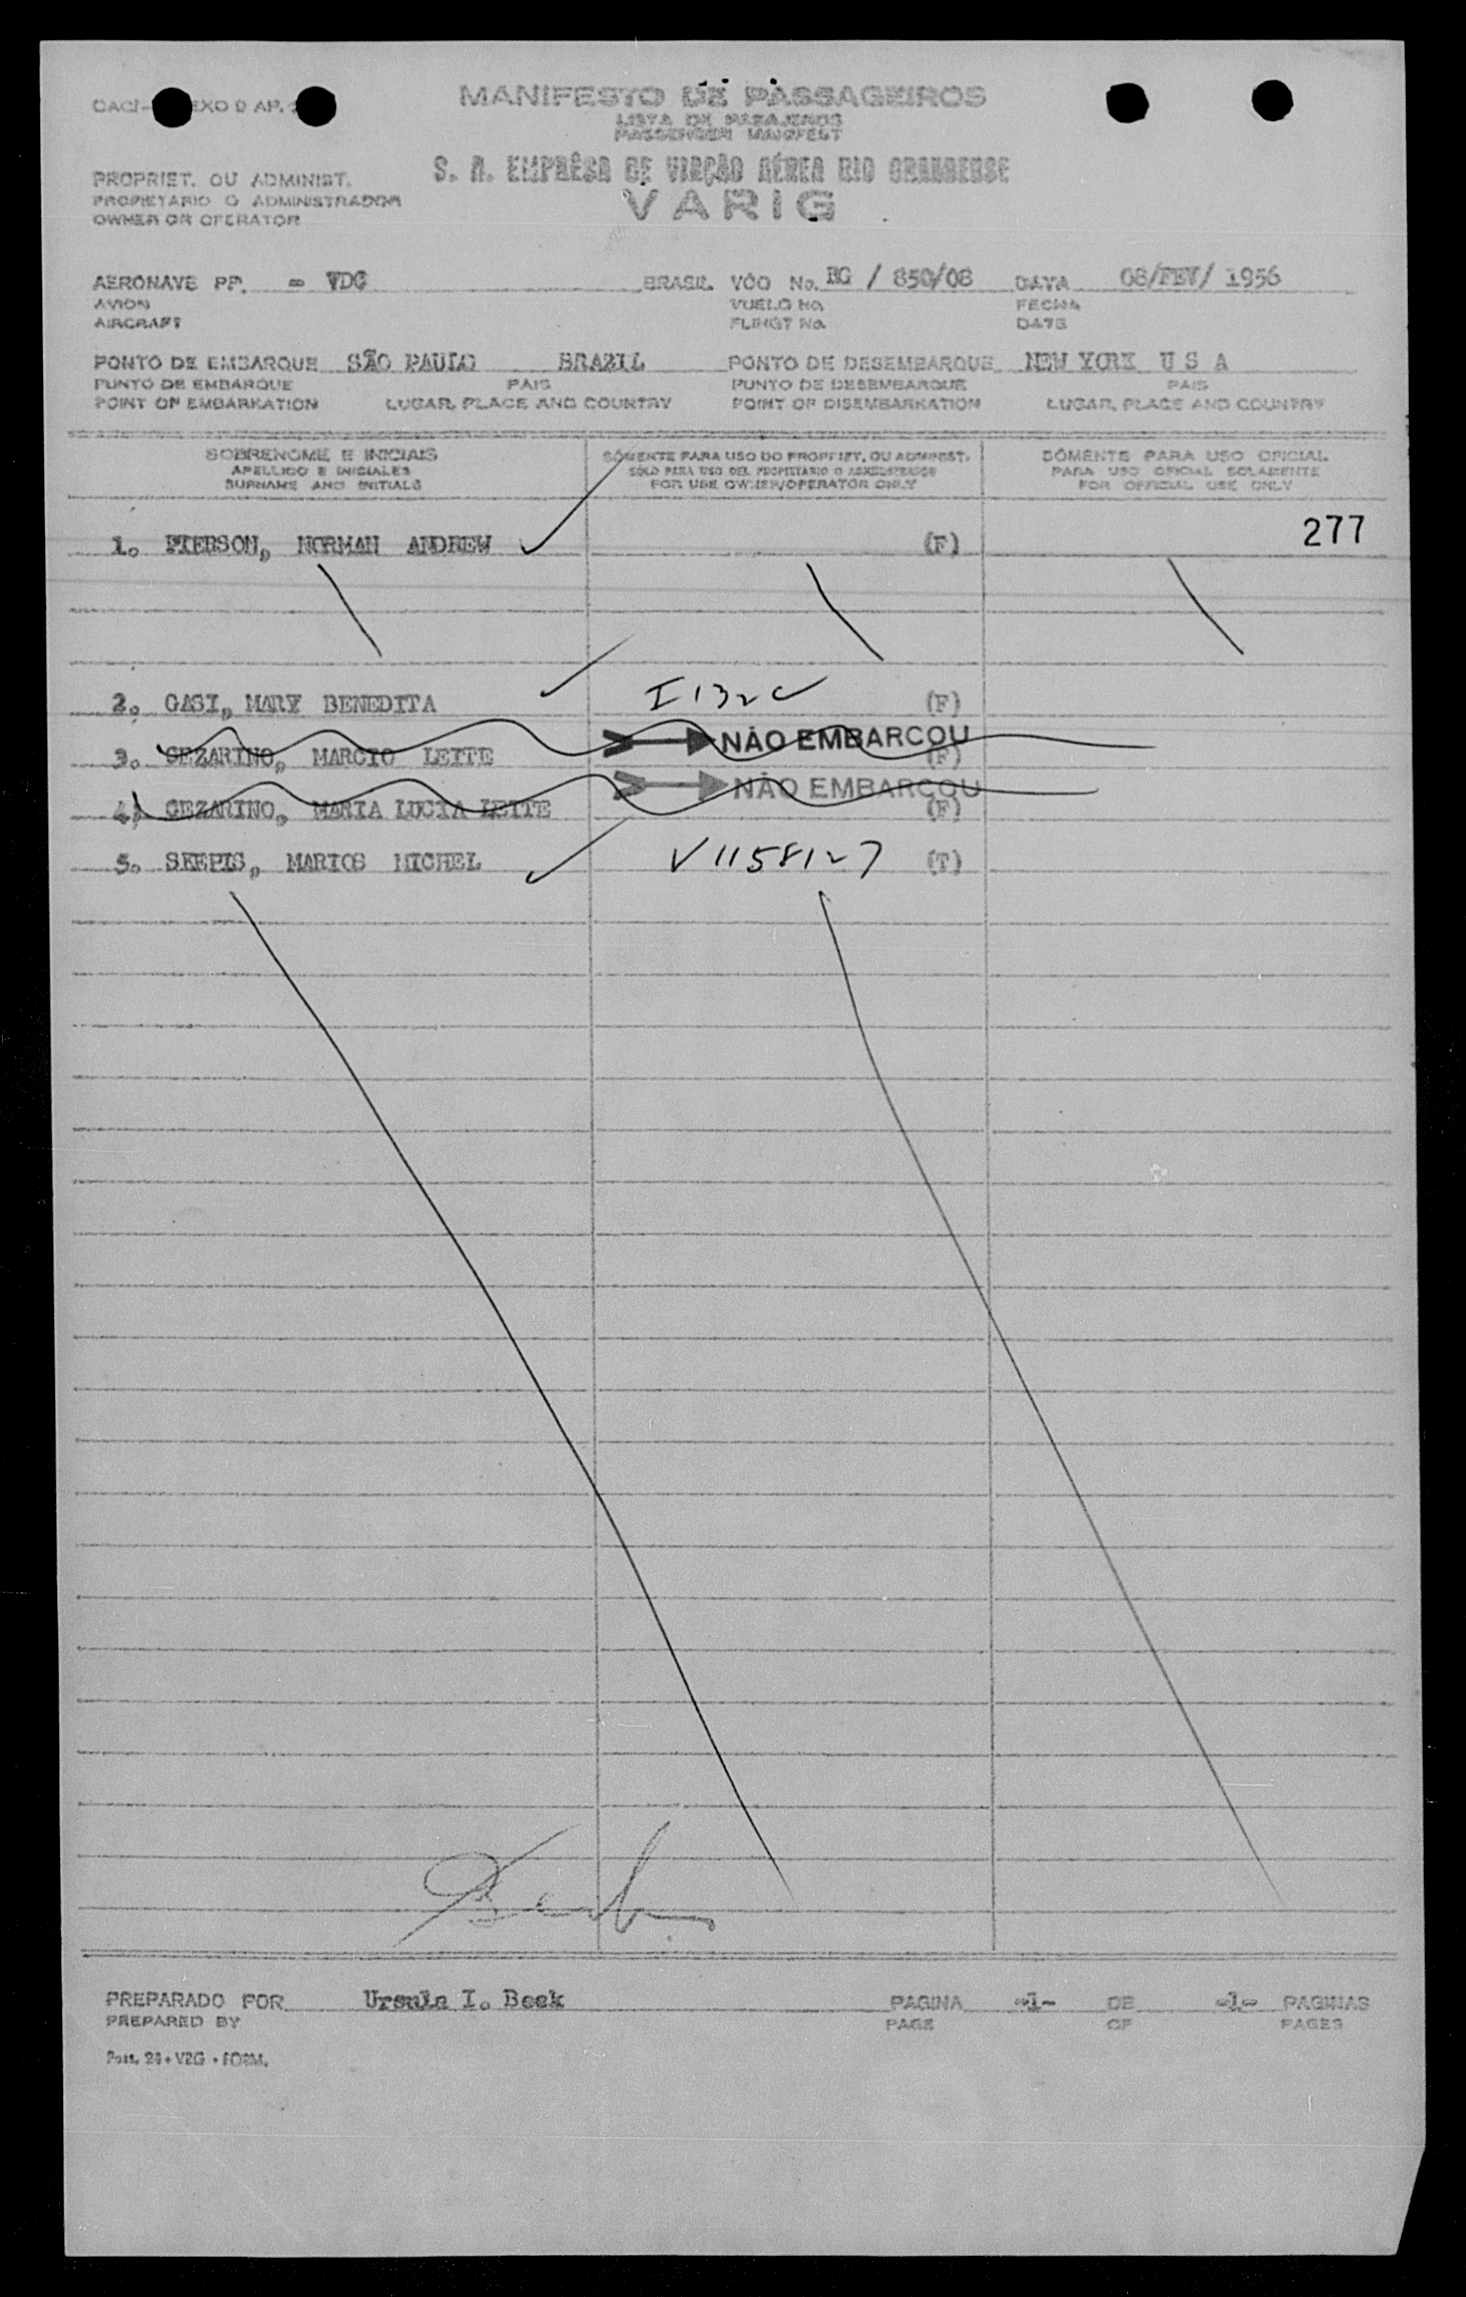 MANIFESTO DE PASSAGEIROS
LISTA DE PASAJEROS
PASSENGER MANIFEST
S. A. EMPRÊSA DE VIAÇÃO AÉREA RIO GRANDENSE
VARIG
PROPRIET. OU ADMINIST.
PROPIETARIO O ADMINISTRADOR
OWNER OR OPERATOR
AERONAVE PP. - VDC BRASIL VÔO No. RG / 850/08 DATA 08/FEV/ 1956
AVION VUELO No. FECHA
AIRCRAFT FLINGT No. DATE
PONTO DE EMBARQUE SÃO PAULO BRAZIL PONTO DE DESEMBARQUE NEW YORK U S A
PUNTO DE EMBARQUE PAIS PUNTO DE DESEMBARQUE PAIS
POINT OF EMBARKATION LUGAR, PLACE AND COUNTRY POINT OF DISEMBARKATION LUGAR, PLACE AND COUNTRY
SOBRENOME E INICIAIS SÓMENTE PARA USO DO PROPRIET. OU ADMINIST. SÓMENTE PARA USO OFICIAL
APELLIDO E INICIALES SOLO PARA USO DEL PROPIETARIO O ADMINISTRADOR PARA USO OFICIAL SOLAMENTE
SURNAME AND INITIALS FOR USE OWNER/OPERATOR ONLY FOR OFFICIAL USE ONLY
277
1. PIERSON, NORMAN ANDREW (F)
2. GASI, MARY BENEDITA (F)
NÃO EMBARCOU
3. CEZARINO, MARCIO LEITE (F)
NÃO EMBARCOU
4. CEZARINO, MARIA LUCIA LEITE (F)
5. SKEPIS, MARIOS MICHEL V1158127 (T)
PREPARADO POR Ursula I. Beek PAGINA -1- DE -1- PAGINAS
PREPARED BY PAGE OF PAGES